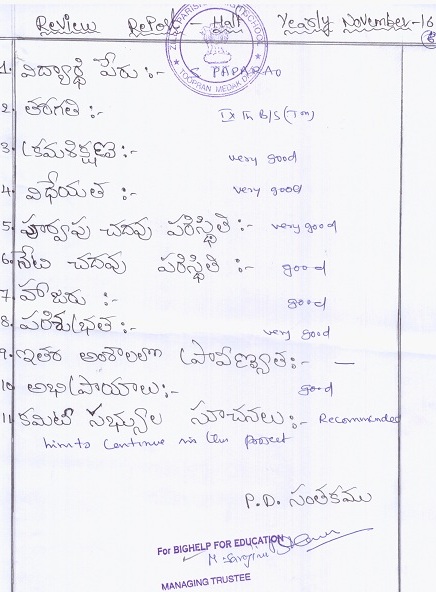 Review Report - Half Yearly November-16
ZILLA PARISHAD HIGH SCHOOL
TOOPRAN MEDAK Dt.
1. విద్యార్థి పేరు :- G PAPARAO
2. తరగతి :- IX Th B/S (Tm)
3. క్రమశిక్షణ :- very good
4. విధేయత :- very good
5. పూర్వపు చదువు పరిస్థితి :- very good
6. నేటి చదువు పరిస్థితి :- good
7. హాజరు :- good
8. పరిశుభ్రత :- very good
9. ఇతర అంశాలలో ప్రావీణ్యత :- —
10. అభిప్రాయాలు :- good
11. కమిటీ సభ్యుల సూచనలు :- Recommended
him to continue in the project
P.D. సంతకము
For BIGHELP FOR EDUCATION
M. Sarojini
MANAGING TRUSTEE